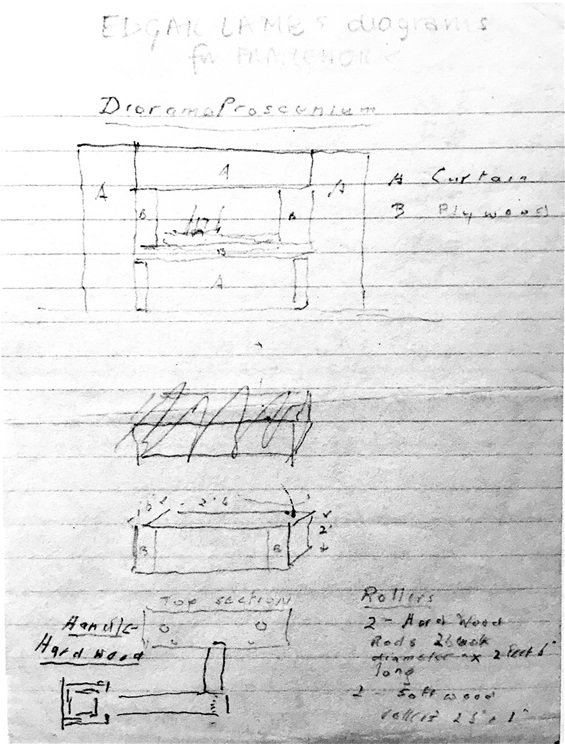 EDGAR LAMB'S diagrams
for FRAMEWORK
Diorama Proscenium
A
A
A
A Curtain
B Plywood
B
B
B
A
2' 6"
2'
B
B
Top SECTION
Handle
Hard wood
Rollers
2 - Hard Wood
Rods
diameter x 2 feet 6"
long
2 - Soft wood
rollers